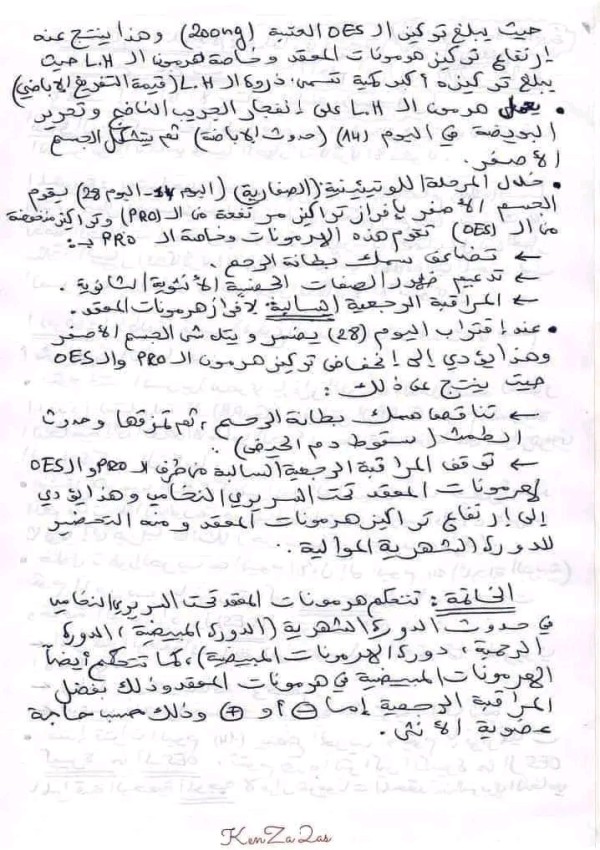 حيث يبلغ تركيز الـ OES العتبة (200ng) وهذا ينتج عنه
إرتفاع تركيز هرمونات المعقد وخاصة هرمون الـ L.H حيث
يبلغ تركيزه أكبر كمية تسمى ذروة الـ L.H (قيمة التفريغ الاباضي)
• يعمل هرمون الـ L.H على إنفجار الجريب الناضج وتحرير
البويضة في اليوم (14) (حدوث الإباضة) ثم يتشكل الجسم
الأصفر.
• خلال المرحلة اللوتيئينية (الصفارية) (اليوم 14 - اليوم 28) يقوم
الجسم الأصفر بإفراز تراكيز مرتفعة من الـ (PRO) وتراكيز منخفضة
من الـ (OES) تقوم هذه الهرمونات وخاصة الـ PRO بـ:
← تضاعف سمك بطانة الرحم.
← تدعيم ظهور الصفات الجنسية الأنثوية الثانوية.
← المراقبة الرجعية السالبة لإفراز هرمونات المعقد.
• عند إقتراب اليوم (28) يضمر ويتلاشى الجسم الأصفر
وهذا يؤدي إلى إنخفاض تركيز هرمون الـ PRO والـ OES
حيث ينتج عن ذلك:
← تناقص سمك بطانة الرحم، ثم تمزقها وحدوث
الطمث (سقوط دم الحيض).
← توقف المراقبة الرجعية السالبة من طرف الـ PRO والـ OES
لهرمونات المعقد تحت السريري النخامي وهذا يؤدي
إلى ارتفاع تراكيز هرمونات المعقد ومنه التحضير
للدورة الشهرية الموالية.
الخاتمة: تتحكم هرمونات المعقد تحت السريري النخامي
في حدوث الدورة الشهرية (الدورة المبيضية، الدورة
الرحمية، دورة الهرمونات المبيضية)، كما تتحكم أيضاً
الهرمونات المبيضية في هرمونات المعقد وذلك بفضل
المراقبة الرجعية إما ⊖ أو ⊕ وذلك حسب حاجة
عضوية الأنثى.
KenZa2as